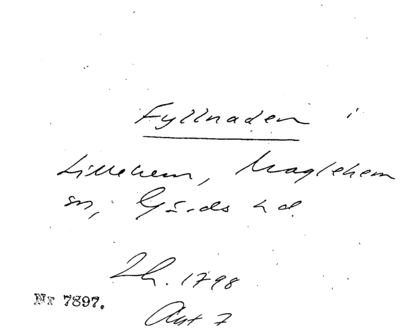 Fyllnaden i
Lillehem, Maglehem
sn, Gärds hd.
Lh. 1798
Akt 7
Nr 7897.